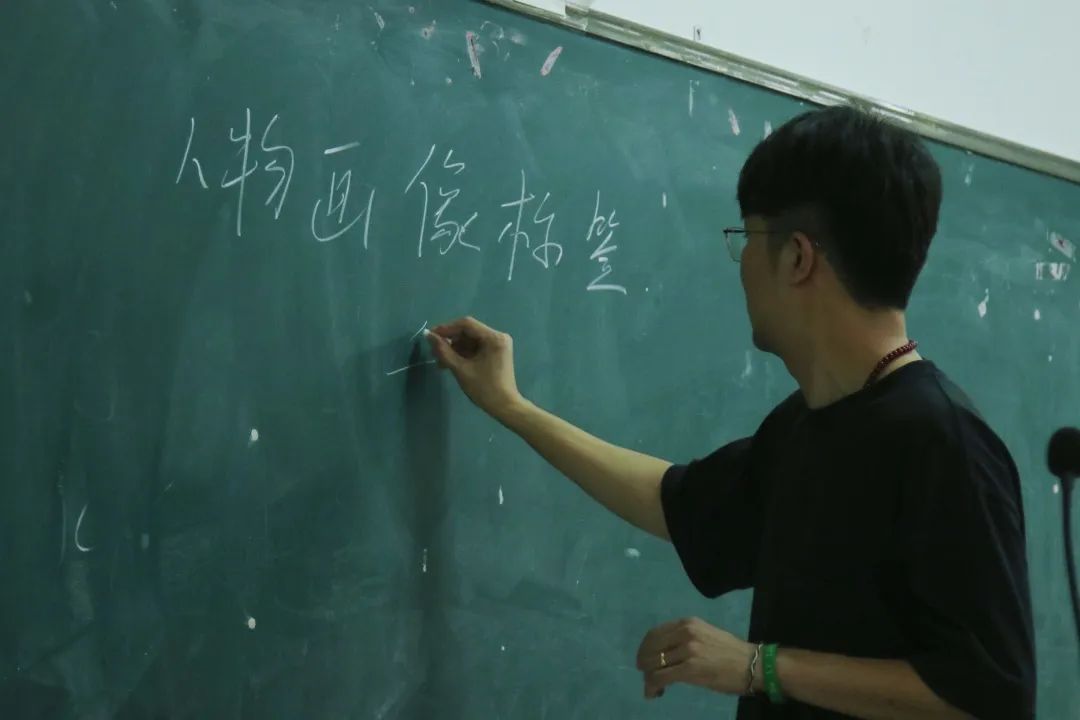 人物画像标签